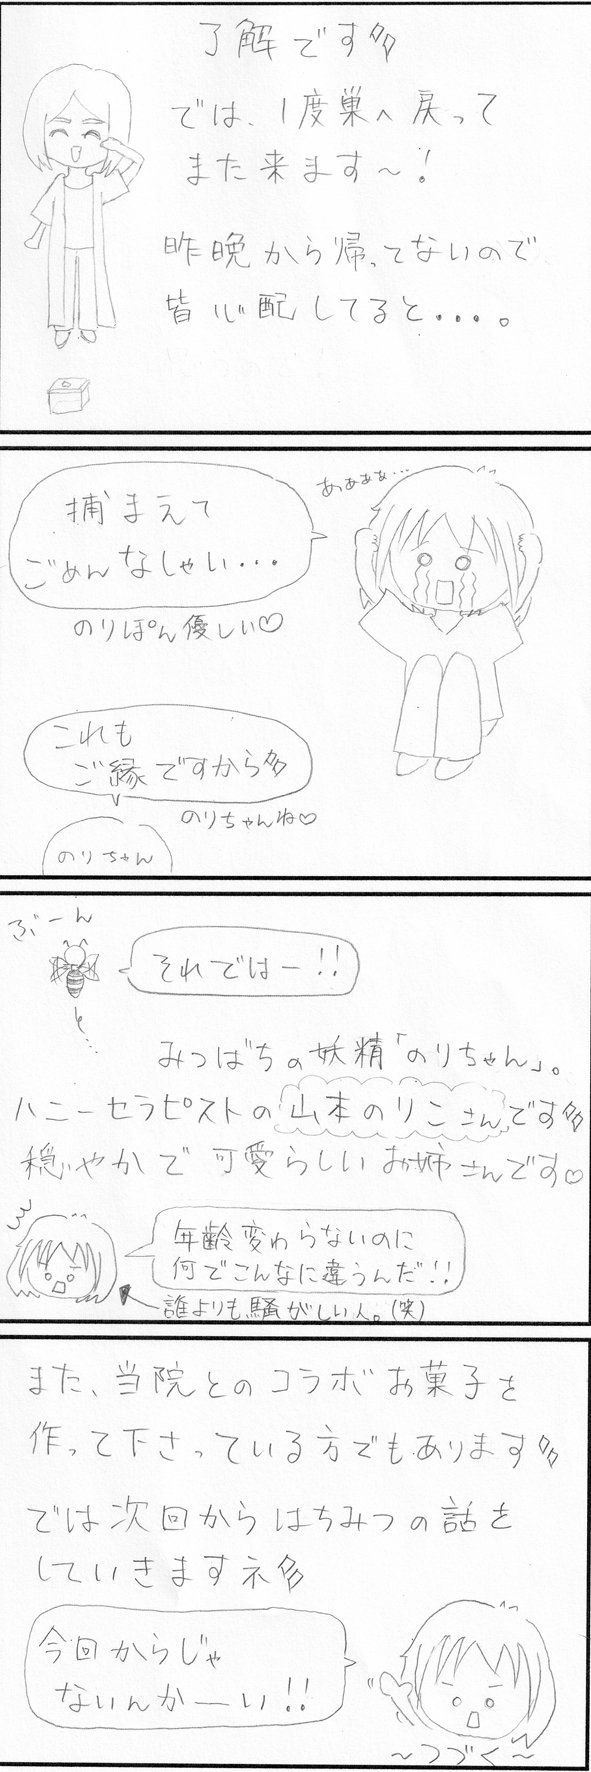 了解です彡
では、1度巣へ戻って
また来ます〜!
昨晩から帰ってないので
皆心配してると・・・・。
あぁぁぁぁ・・・
捕まえて
ごめんなしゃい・・・
のりぽん優しい♡
これも
ご縁ですから彡
のりちゃんね♡
のりちゃん
ぶーん
それではー!!
と・・・
みつばちの妖精「のりちゃん」。
ハニーセラピストの山本のりこさんです彡
穏やかで可愛らしいお姉さんです♡
年齢変わらないのに
何でこんなに違うんだ!!
誰よりも騒がしい人。(笑)
また、当院とのコラボお菓子を
作って下さっている方でもあります彡
では次回からはちみつの話を
していきますネ彡
今回からじゃ
ないんかーい!!
〜つづく〜